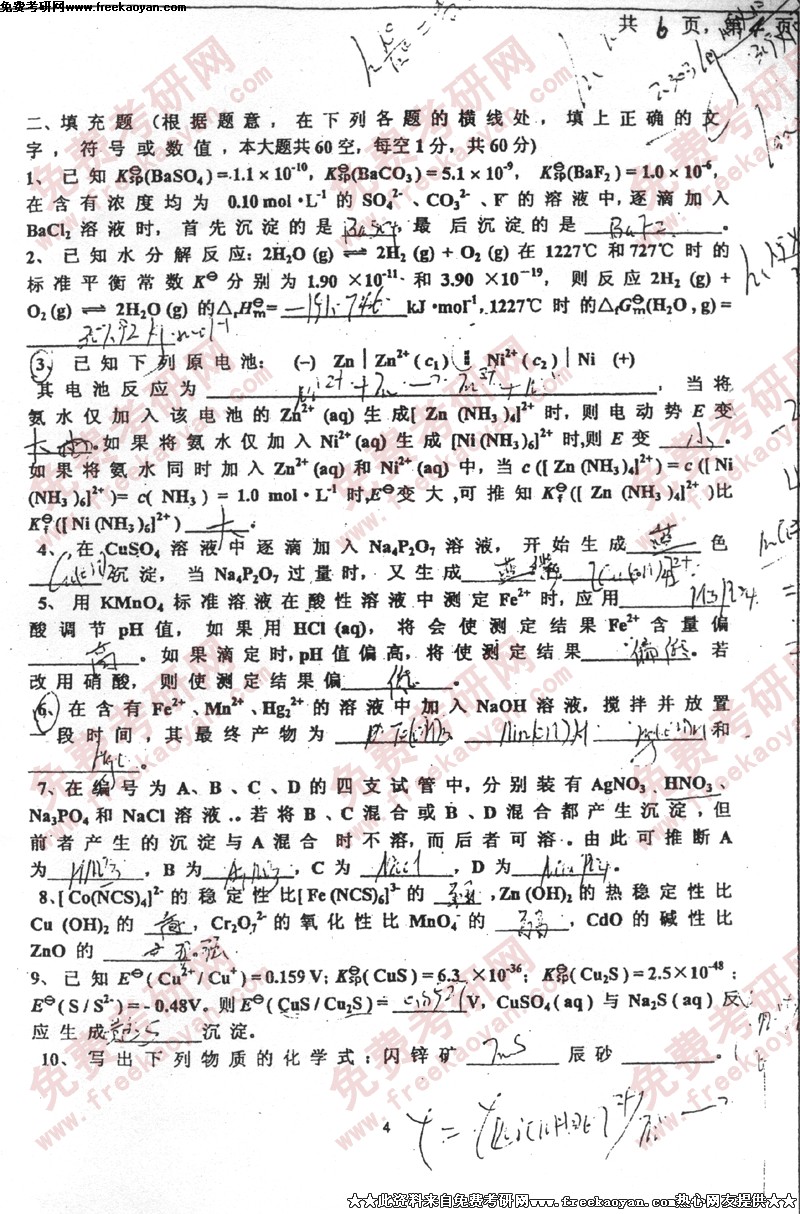 免费考研网
www.freekaoyan.com
共 6 页，第 4 页
二、填充题（根据题意，在下列各题的横线处，填上正确的文
字，符号或数值，本大题共60空，每空1分，共60分）
1、已知 K⊖sp(BaSO₄)=1.1×10⁻¹⁰, K⊖sp(BaCO₃)=5.1×10⁻⁹, K⊖sp(BaF₂)=1.0×10⁻⁶,
在含有浓度均为 0.10 mol·L⁻¹ 的 SO₄²⁻、CO₃²⁻、F⁻ 的溶液中，逐滴加入
BaCl₂ 溶液时，首先沉淀的是 BaSO₄，最后沉淀的是 BaF₂。
2、已知水分解反应：2H₂O (g) ⇌ 2H₂ (g) + O₂ (g) 在 1227℃ 和 727℃ 时的
标准平衡常数 K⊖ 分别为 1.90 ×10⁻¹¹ 和 3.90 ×10⁻¹⁹，则反应 2H₂ (g) +
O₂ (g) ⇌ 2H₂O (g) 的△rH⊖m= kJ·mol⁻¹, 1227℃ 时的△fG⊖m(H₂O , g) =
3、已知下列原电池： (–) Zn│Zn²⁺ ( c₁ ) ┇ Ni²⁺ ( c₂ )│Ni (+)
其电池反应为 Ni²⁺ + Zn → Zn²⁺ + Ni ，当将
氨水仅加入该电池的 Zn²⁺ (aq) 生成[ Zn (NH₃ )₄]²⁺ 时，则电动势 E 变
大。如果将氨水仅加入 Ni²⁺ (aq) 生成 [Ni (NH₃)₆]²⁺ 时，则 E 变 小。
如果将氨水同时加入 Zn²⁺ (aq) 和 Ni²⁺ (aq) 中，当 c ([ Zn (NH₃)₄]²⁺ ) = c ([ Ni
(NH₃)₆]²⁺ )= c( NH₃ ) = 1.0 mol·L⁻¹ 时，E⊖变大，可推知 K⊖f ([ Zn (NH₃)₄]²⁺ )比
K⊖f ([ Ni (NH₃)₆]²⁺ ) 大。
4、在 CuSO₄ 溶液中逐滴加入 Na₄P₂O₇ 溶液，开始生成 蓝 色
沉淀，当 Na₄P₂O₇ 过量时，又生成
5、用 KMnO₄ 标准溶液在酸性溶液中测定 Fe²⁺ 时，应用 H₃PO₄
酸调节 pH 值，如果用 HCl (aq)，将会使测定结果 Fe²⁺ 含量偏
高。如果滴定时，pH 值偏高，将使测定结果 偏低。若
改用硝酸，则使测定结果偏 低。
6、在含有 Fe²⁺、Mn²⁺、Hg₂²⁺ 的溶液中加入 NaOH 溶液，搅拌并放置
一段时间，其最终产物为 和
。
7、在编号为 A、B、C、D 的四支试管中，分别装有 AgNO₃、HNO₃、
Na₃PO₄ 和 NaCl 溶液。若将 B、C 混合或 B、D 混合都产生沉淀，但
前者产生的沉淀与 A 混合时不溶，而后者可溶。由此可推断 A
为 HNO₃，B 为 AgNO₃，C 为 NaCl，D 为 Na₃PO₄。
8、[ Co(NCS)₄]²⁻ 的稳定性比[ Fe (NCS)₆]³⁻ 的 ，Zn (OH)₂ 的热稳定性比
Cu (OH)₂ 的 高，Cr₂O₇²⁻ 的氧化性比 MnO₄⁻ 的 ，CdO 的碱性比
ZnO 的 强
9、已知 E⊖ ( Cu²⁺ / Cu⁺ ) = 0.159 V; K⊖sp( CuS ) = 6.3 ×10⁻³⁶; K⊖sp( Cu₂S ) = 2.5×10⁻⁴⁸;
E⊖ ( S / S²⁻ ) = - 0.48V。则 E⊖ ( CuS / Cu₂S ) = V，CuSO₄ ( aq ) 与 Na₂S ( aq ) 反
应生成 沉淀。
10、写出下列物质的化学式：闪锌矿 ZnS 辰砂 。
4
★★此资料来自免费考研网www.freekaoyan.com热心网友提供★★